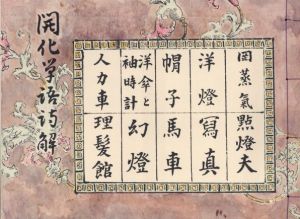 岡蒸氣
點燈夫
洋燈
寫真
帽子
馬車
洋傘と
袖時計
幻燈
人力車
理髪館
開化学語解